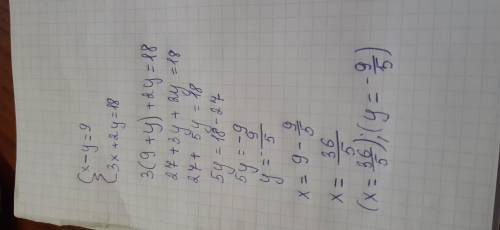 {x-y=9
{3x+2y=18
3(9+y)+2y=18
27+3y+2y=18
27+5y=18
5y=18-27
5y=-9
y=-9/5
x=9-9/5
x=36/5
(x=36/5);(y=-9/5)